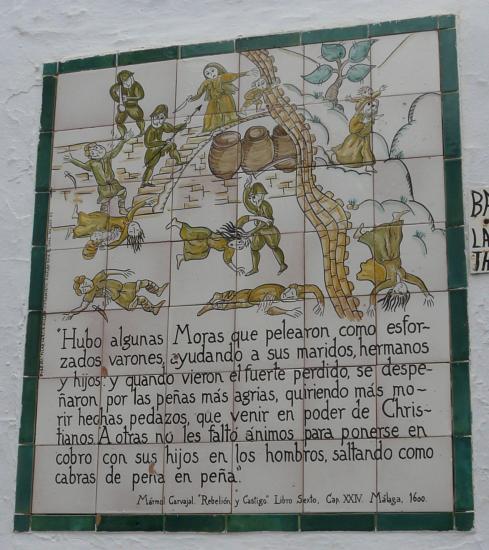 "Hubo algunas Moras que pelearon como esfor-
zados varones, ayudando a sus maridos, hermanos
y hijos: y quando vieron el fuerte perdido, se despe-
ñaron por las peñas más agrias, quiriendo más mo-
rir hechas pedazos, que venir en poder de Chris-
tianos. A otras no les faltó ánimos para ponerse en
cobro con sus hijos en los hombros, saltando como
cabras de peña en peña".
Mármol Carvajal. "Rebelión y Castigo" Libro Sexto, Cap. XXIV. Málaga, 1600.
LA